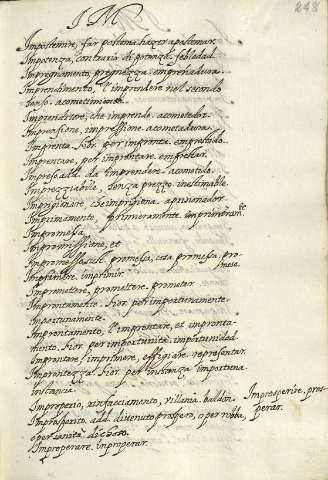 I M
243
Impostemire, far postema. hazer apostemar.
Impotenza, contrario di potenza. febledad.
Impregnamento, pregnezza. emprenadura.
Imprendimento, l'imprendere nel secondo
senso. acometimiento.
Imprenditore, che imprende. acometedor.
Impressione, impressione. acometadura.
Imprenta. Fior. per impronta. emprestido.
Imprentare, per improntare. emprestar.
Impresa. da Imprendere. acometido.
Imprezziabile, senza prezzo. inestimable.
Imprigionare, che imprigiona. aprisionador.
Imprimamente, primieramente. en primer
Impromessa.
Impromissione, et
Impromesso sust. promessa, cosa promessa. pro-
mesa.
Imprimire. imprimir.
Impromettere, promettere. prometer.
Improntamente. Fior. per importunamente.
importunamente.
Improntamento, l'improntare, et impronta-
mento. Fior. per importunità. importunidad.
Improntare, imprimere, effigiare. representar.
Improntezza. Fior. per instanza importuna.
instancia.
Improperio, rinfacciamento, villania. baldon.
Improsperire. pros-
perar.
Improsperito. add. divenuto prospero, o per robba,
o per sanità.
Improperare. improperar.